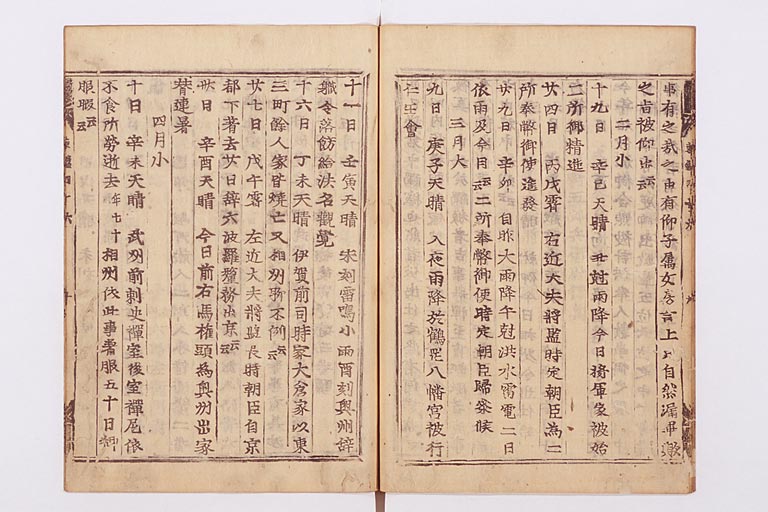 之旨被仰出云云
二月小
十九日 辛巳天晴 丑尅雨降今日將軍家被始
二所御精進
廿四日 丙戌霽 右近大夫將監時定朝臣為二
所奉幣御使進發
廿九日 辛卯 自昨大雨降午尅洪水雷電二日
依雨及今日云云二所奉幣御使時定朝臣歸參候
三月大
九日 庚子天晴 入夜雨降於鶴罡八幡宮被行
仁王會
十一日 壬寅天晴 未刻雷鳴小雨酉刻奥州辞
職令落餝給法名觀覺
十六日 丁未天晴 伊賀前司時家大倉家以東
三町餘人家皆燒亡又相州勞不例云云
廿七日 戊午霽 左近大夫將監長時朝臣自京
都下著去廿日辞六波羅䟽務出京云云
卅日 辛酉天晴 今日前右馬権頭為奥州出家
替連署
四月小
十日 辛未天晴 武州前刺史禪室後室禪尼依
不食所勞逝去年七十 相州依此事著服五十日
服暇云云